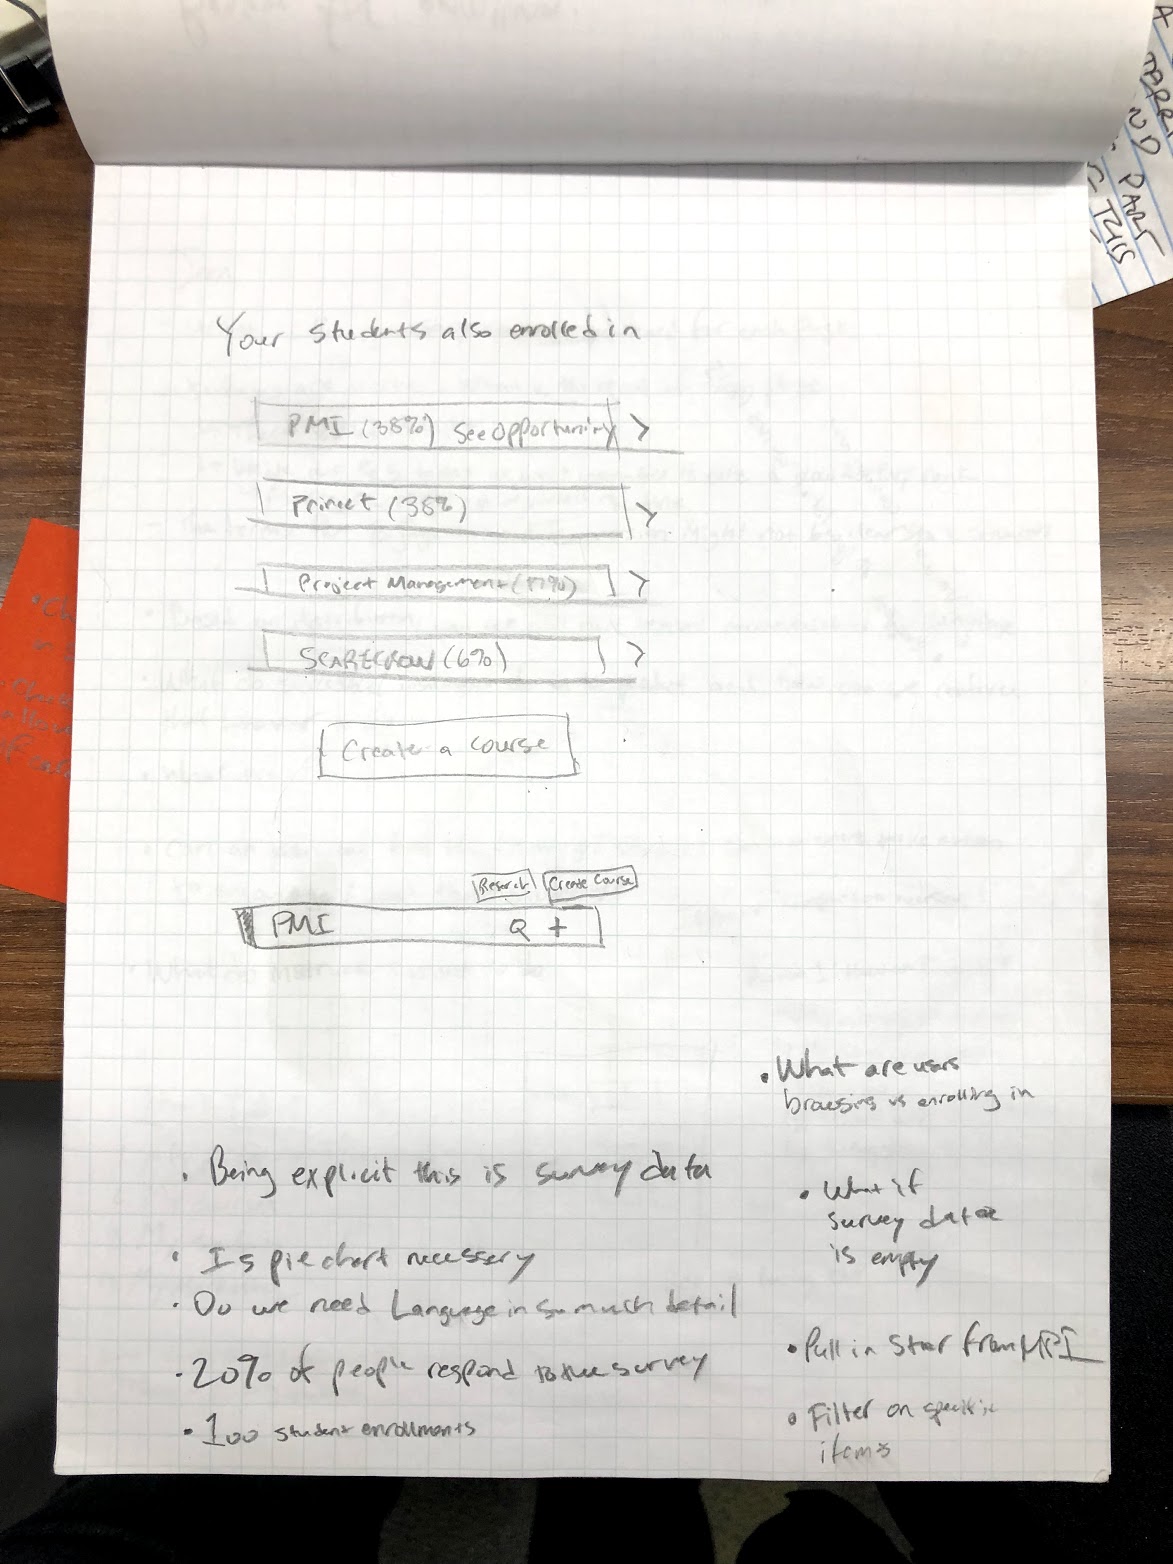 Your students also enrolled in
PMI (38%) See Opportunity >
Prince (38%) >
Project Management (17%) >
SCARECROW (6%) >
Create a course
Research
Create Course
PMI Q +
• What are users
browsing vs enrolling in
• Being explicit this is survey data
• What if
survey data
is empty
• Is pie chart necessary
• Do we need Language in so much detail
• Pull in Star from MPI
• 20% of people respond to the survey
• Filter on specific
items
• 100 student enrollments
A
ND
PART
THIS